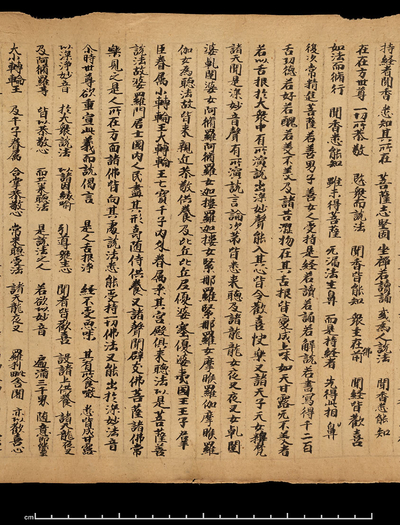 持經者聞香 悉知其所在 菩薩志堅固 坐禪若讀誦 或為人說法 聞香悉能知
在在方世尊 一切所恭敬 愍眾而說法 聞香悉能知 衆生在佛前 聞經皆歡喜
如法而修行 聞香悉能知 雖未得菩薩 无漏法生鼻 而是持經者 先得此相鼻
復次常精進菩薩若善男子善女人受持是經若讀若誦若解說若書寫得千二百
舌功德若好若醜若美不美及諸苦澀物在其舌根皆變成上味如天甘露无不美者
若以舌根於大衆中有所演說出深妙聲能入其心皆令歡喜快樂又諸天子天女釋梵
諸天聞是深妙音聲有所演說言論次第皆悉來聽及諸龍龍女夜叉夜叉女乾闥
婆乾闥婆女阿修羅阿修羅女迦樓羅迦樓羅女緊那羅緊那羅女摩睺羅伽摩睺羅
伽女為聽法故皆來親近恭敬供養及比丘比丘尼優婆塞優婆夷國王王子羣
臣眷屬小轉輪王大轉輪王七寶千子內外眷屬乘其宮殿俱來聽法以是菩薩善
說法故婆羅門居士國內人民盡其形壽隨侍供養又諸聲聞辟支佛菩薩諸佛常
樂見之是人所在方面諸佛皆向其處說法悉能受持一切佛法又能出於深妙法音
尒時世尊欲重宣此義而說偈言 是人舌根淨 終不受惡味 其有所食噉 悉皆成甘露
以深淨妙音 於大衆說法 以諸因緣喻 引導衆生心 聞者皆歡喜 設諸上供養 諸天龍夜叉
及阿修羅等 皆以恭敬心 而共來聽法 是說法之人 若欲以妙音 遍滿三千界 隨意即能至
大小轉輪王 及千子眷屬 合掌恭敬心 常來聽受法 諸天龍夜叉 羅刹毗舍闍 亦以歡喜心
cm